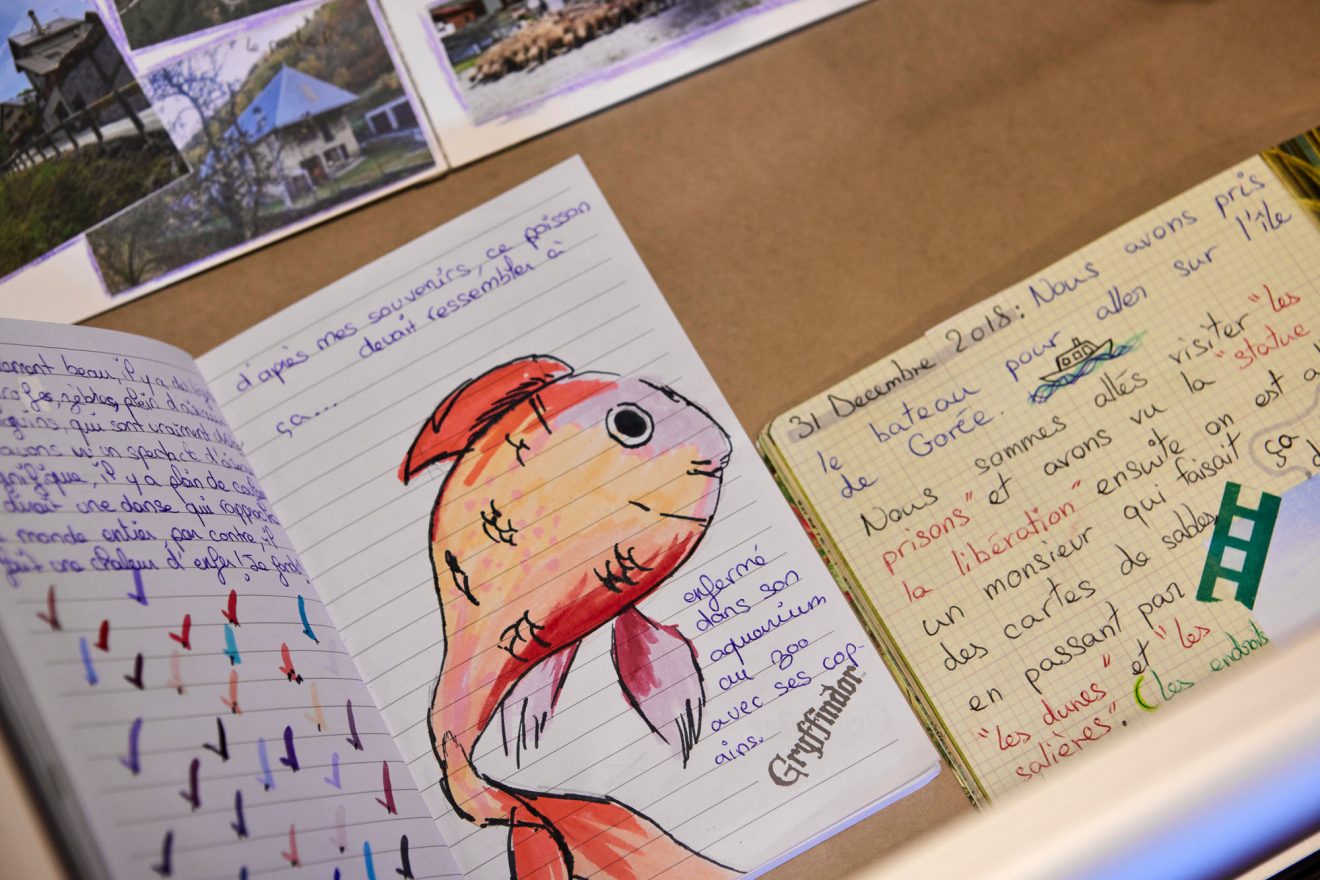 beau, il y a des
zèbres, plein
qui sont vraiment
un spectacle
il y a plein de
une danse qui
monde entier par contre, il
fait une chaleur d'enfer!
d'après mes souvenirs, ce poisson
devait ressembler à
ça....
enfermé
dans son
aquarium
au zoo
avec ses cop-
ains.
Gryffindor
31 Decembre 2018: Nous avons pris
le bateau pour aller sur l'île
de Gorée.
Nous sommes allés visiter "les
prisons" et avons vu la "statue
la libération" ensuite on est a
un monsieur qui faisait ça
des cartes de sables
en passant par
"les dunes" et "les
salières". (les endroits